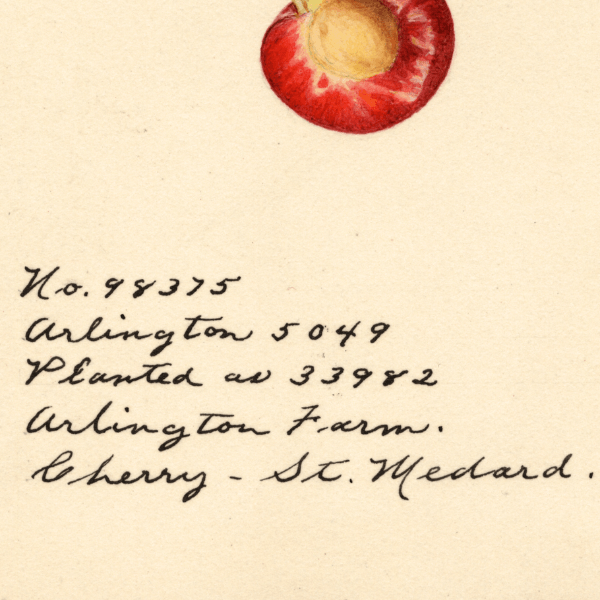 No. 98375
Arlington 5049
Planted as 33982
Arlington Farm.
Cherry - St. Medard.